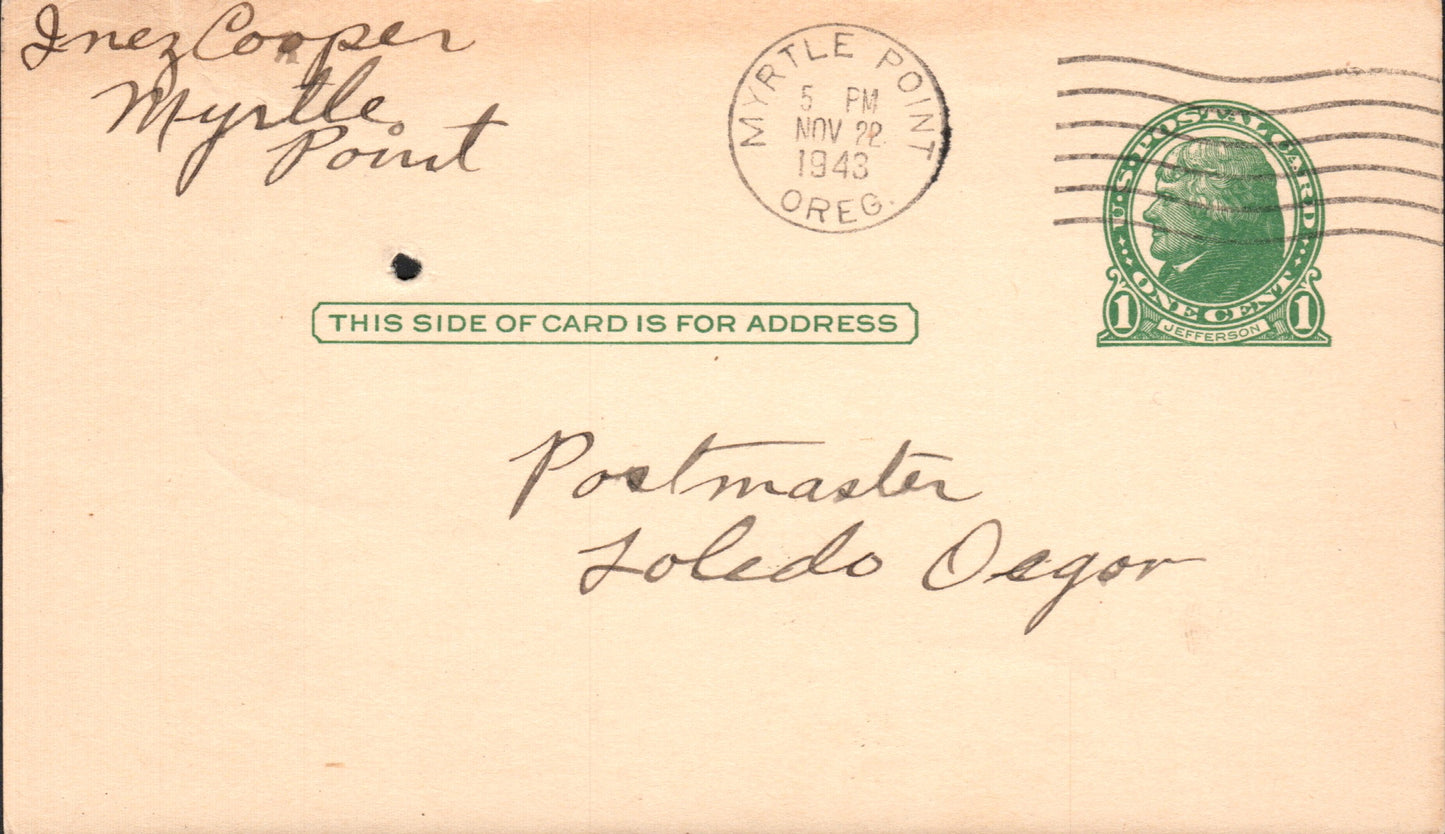 Inez Cooper
Myrtle
Point
MYRTLE POINT
5 PM
NOV 22
1943
OREG.
U.S. POSTAL CARD
ONE CENT
1 JEFFERSON 1
THIS SIDE OF CARD IS FOR ADDRESS
Postmaster
Toledo Oegon